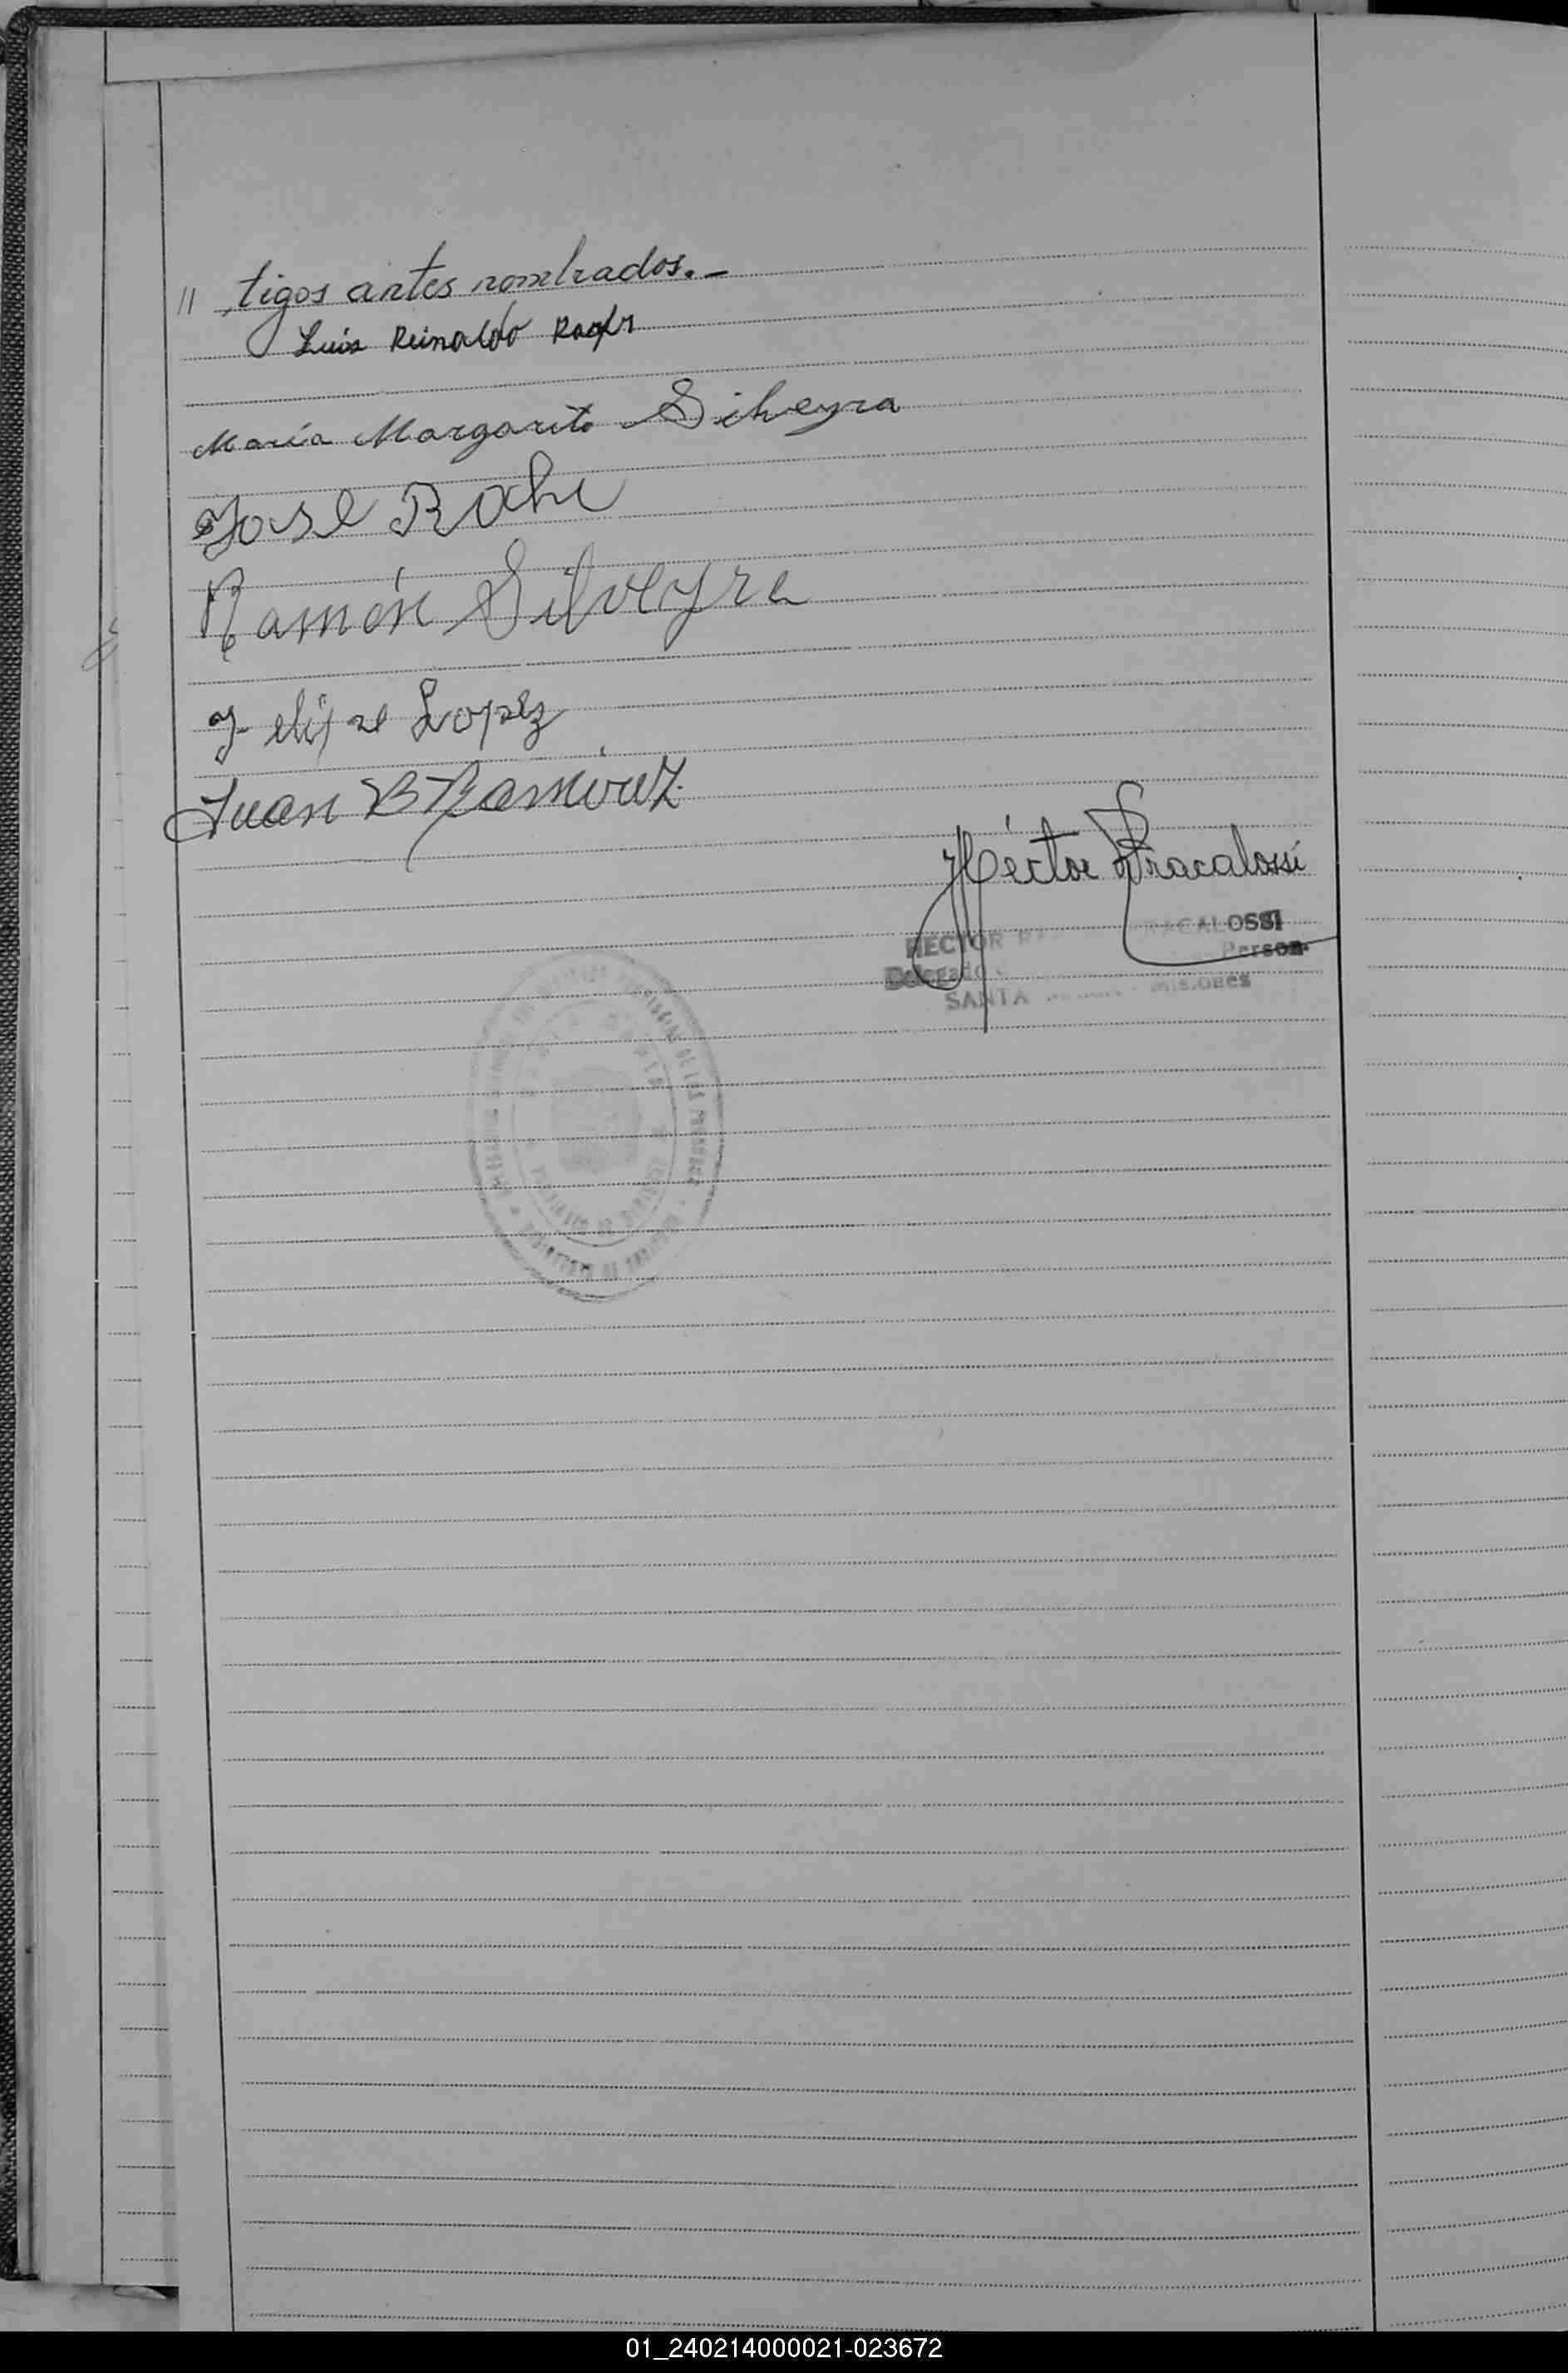 // tigos antes nombrados.-
Luis Reinaldo
María Margarita Silveyra
José
Ramón Silveyra
Felipe Lopez
Juan B Ramírez
Héctor Fracalossi
HECTOR FRACALOSSI
Delegado Person
SANTA Misiones
01_240214000021-023672